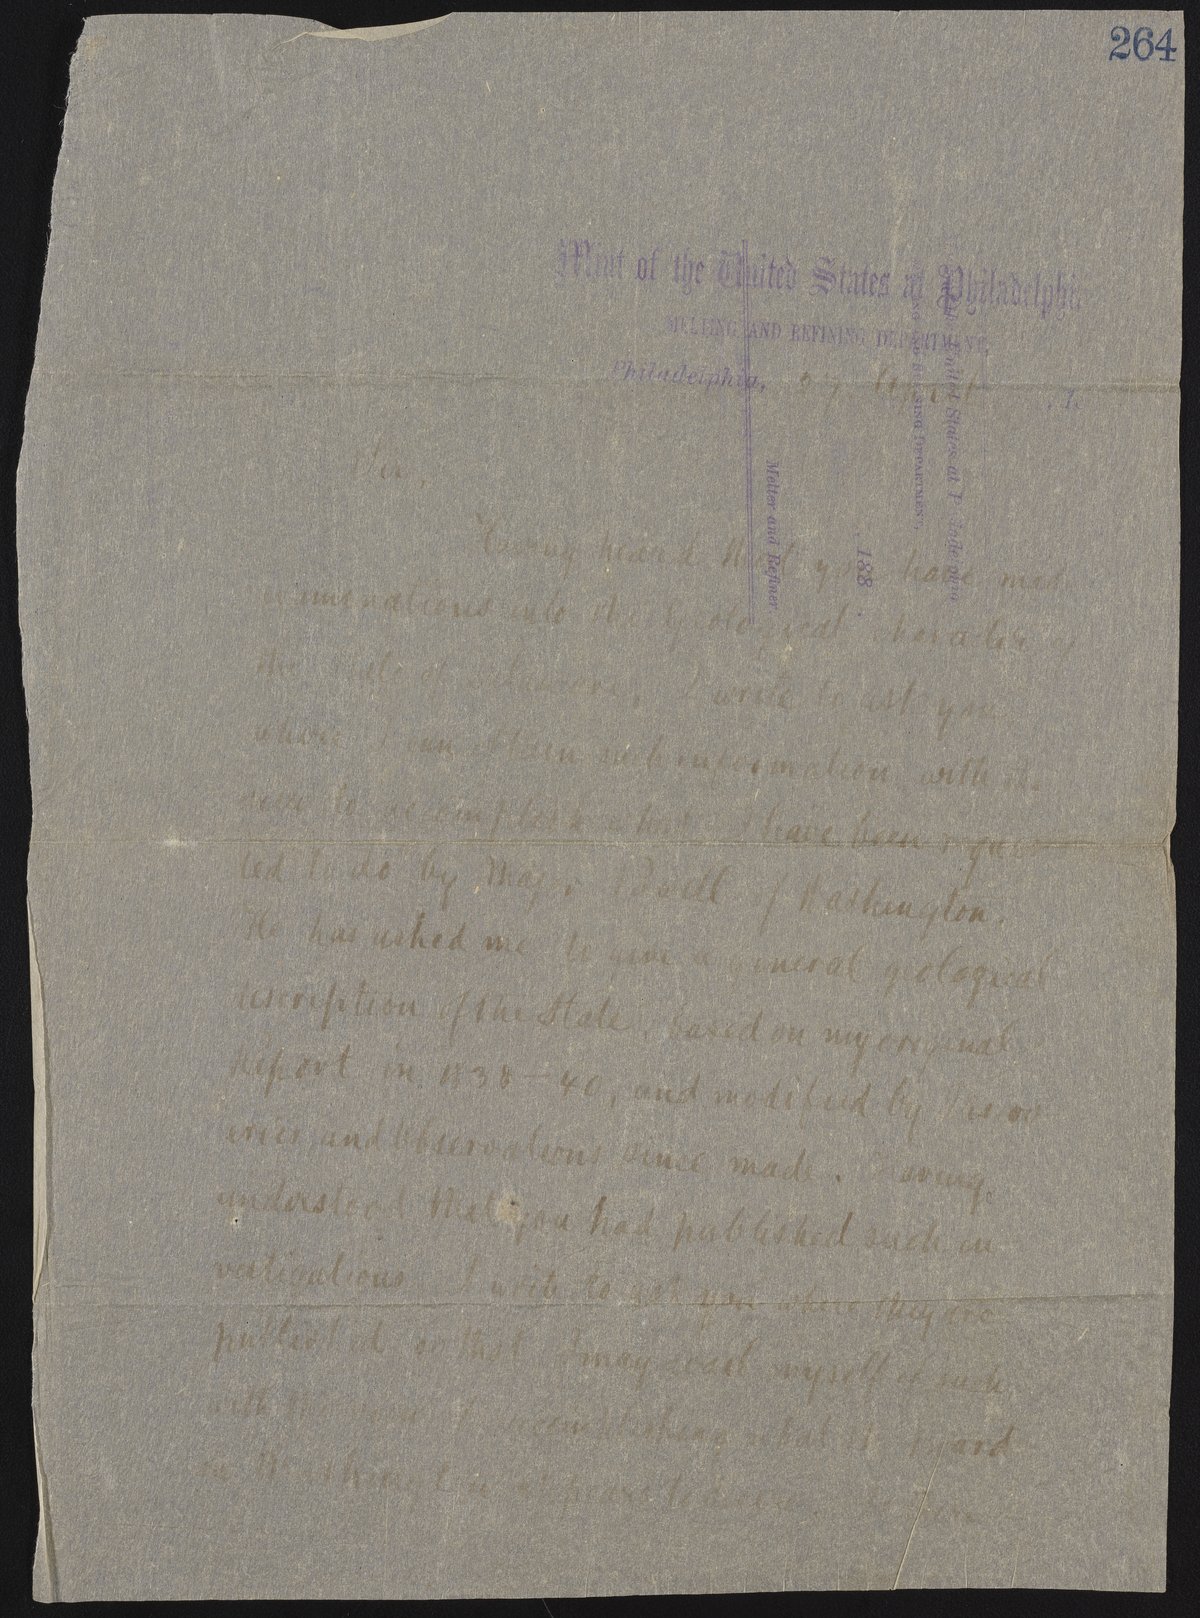 264
Mint of the United States at Philadelphia
MELTING AND REFINING DEPARTMENT,
Philadelphia,
Melter and Refiner
188 .
Sir,
Having heard that you have made
examinations into the Geological character of
the State of Delaware, I write to ask you
where I can obtain such information with a
view to accomplish what I have been reques-
ted to do by Maj. Powell of Washington.
He has asked me to give a general geological
description of the State, based on my original
Report in 1838-40, and modified by discov
eries and observations since made. Having
understood that you had published such in-
vestigations I write to ask you where they are
published so that I may avail myself of such
with the view of accomplishing what the Board
in Washington